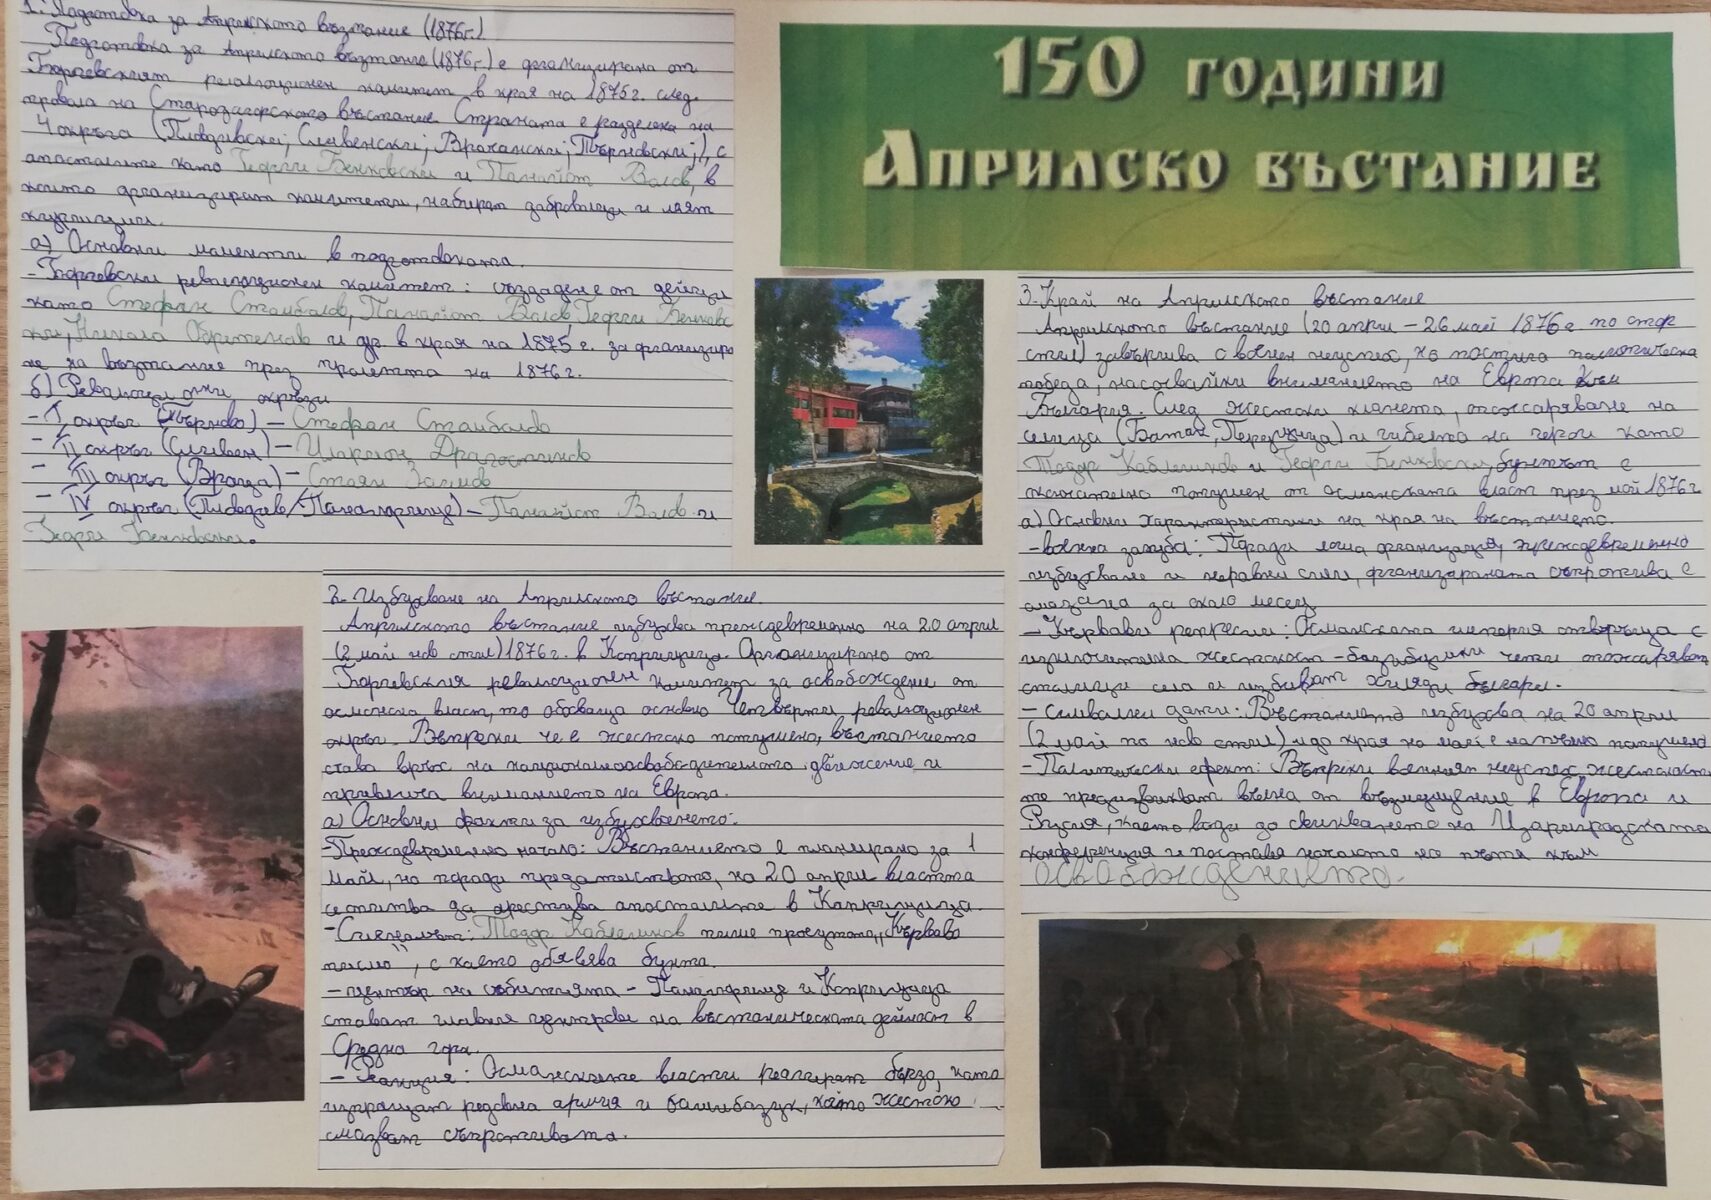 1. Подготовка за Априлското възтание (1876г.)
Подготовка за Априлското възтание (1876г.) е организирана от
Гюргевският революционен комитет в края на 1875г. след
провала на Старозагорското въстание. Страната е разделена на
4 окръга (Пловдивски; Сливенски; Врачански; Търновски;), с
апостолите като Георги Бенковски и Панайот Волов, в
които организират комитети, набират доброволци и леят
куршуми.
а) Основни моменти в подготовката.
- Гюргевски революционен комитет: създадене от дейци
като Стефан Стамболов, Панайот Волов, Георги Бенковс
ки, Никола Обретенов и др. в края на 1875 г. за организира
не на възтание през пролетта на 1876г.
б) Революционни окръзи
- I окръг (Търново) - Стефан Стамболов
- II окръг (Сливен) - Иларион Драгостинов
- III окръг (Враца) - Стоян Заимов
- IV окръг (Пловдив/Панагюрище) - Панайот Волов и
Георги Бенковски.
150 ГОДИНИ
АПРИЛСКО ВЪСТАНИЕ
2. Избухване на Априлското въстание.
Априлското въстание избухва преждевременно на 20 април
(2 май нов стил) 1876г. в Копривщица. Организирано от
Гюргевския революционен комитет за освобождение от
османска власт, то обхваща основно Четвърти революционен
окръг. Въпреки че е жестоко потушено, въстанието
става връх на националноосвободителното движение и
привлича вниманието на Европа.
а) Основни факти за избухването:
- Преждевременно начало: Въстанието е планирано за 1
май, но поради предателството, на 20 април властта
се опитва да арестува апостолите в Копривщица.
- Сигналът: Тодор Каблешков пише прочутото „Кърваво
писмо", с което обявява бунта.
- център на събитията - Панагюрище и Копривщица
стават главни центрове на въстаническата дейност в
Средна гора.
- Реакция: Османските власти реагират бързо, като
изпращат редовна армия и башибозук, които жестоко
смазват съпротивата.
3. Край на Априлското въстание
Априлското въстание (20 април - 26 май 1876г. по стар
стил) завършва с военен неуспех, но постига политическа
победа, насочвайки вниманието на Европа към
България. След жестоки кланета, опожаряване на
селища (Батак, Перущица) и гибелта на герои като
Тодор Каблешков и Георги Бенковски, бунтът е
окончателно потушен от османската власт през май 1876г.
а) Основни характеристики на края на въстането.
- военна загуба: Поради лоша организация, преждевременно
избухване и неравни сили, организираната съпротива е
смазана за около месец
- Кървави репресии: Османската отвръща с
изключителна жестокост - чети опожаряват
стотици села и избиват хиляди българи.
- символни дати: Въстанието избухва на 20 април
(2 май по нов стил) и до края на май е напълно потушено
- Политически ефект: Въпреки военният неуспех жестокост
те предизвикват вълна от възмущение в Европа и
Русия, което води до свикването на Цариградската
конференция и поставя началото на пътя към
Освобождението.